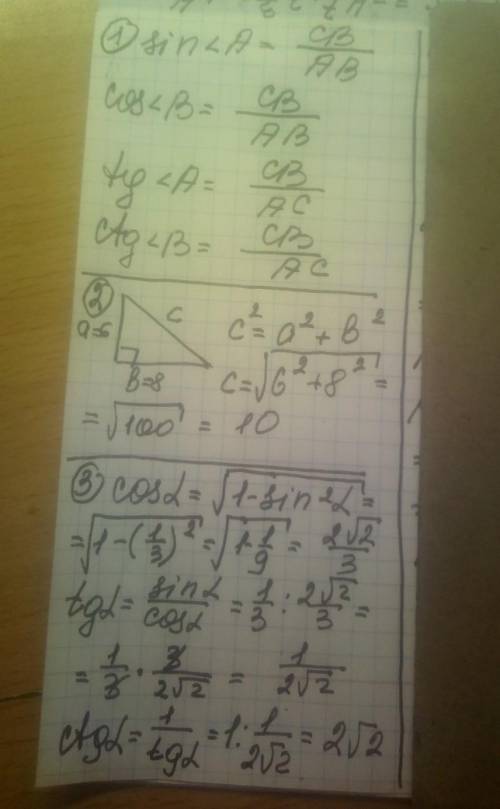 ① sin<A = CB/AB
cos<B = CB/AB
tg<A = CB/AC
ctg<B = CB/AC
②
c
a=6
в=8
c² = a² + в²
c = √(6² + 8²) =
= √100 = 10
③ cosα = √(1 - sin²α) =
= √(1 - (1/3)²) = √(1 - 1/9) = 2√2/3
tgα = sinα/cosα = 1/3 : 2√2/3 =
= 1/3 · 3/2√2 = 1/2√2
ctgα = 1/tgα = 1 : 1/2√2 = 2√2